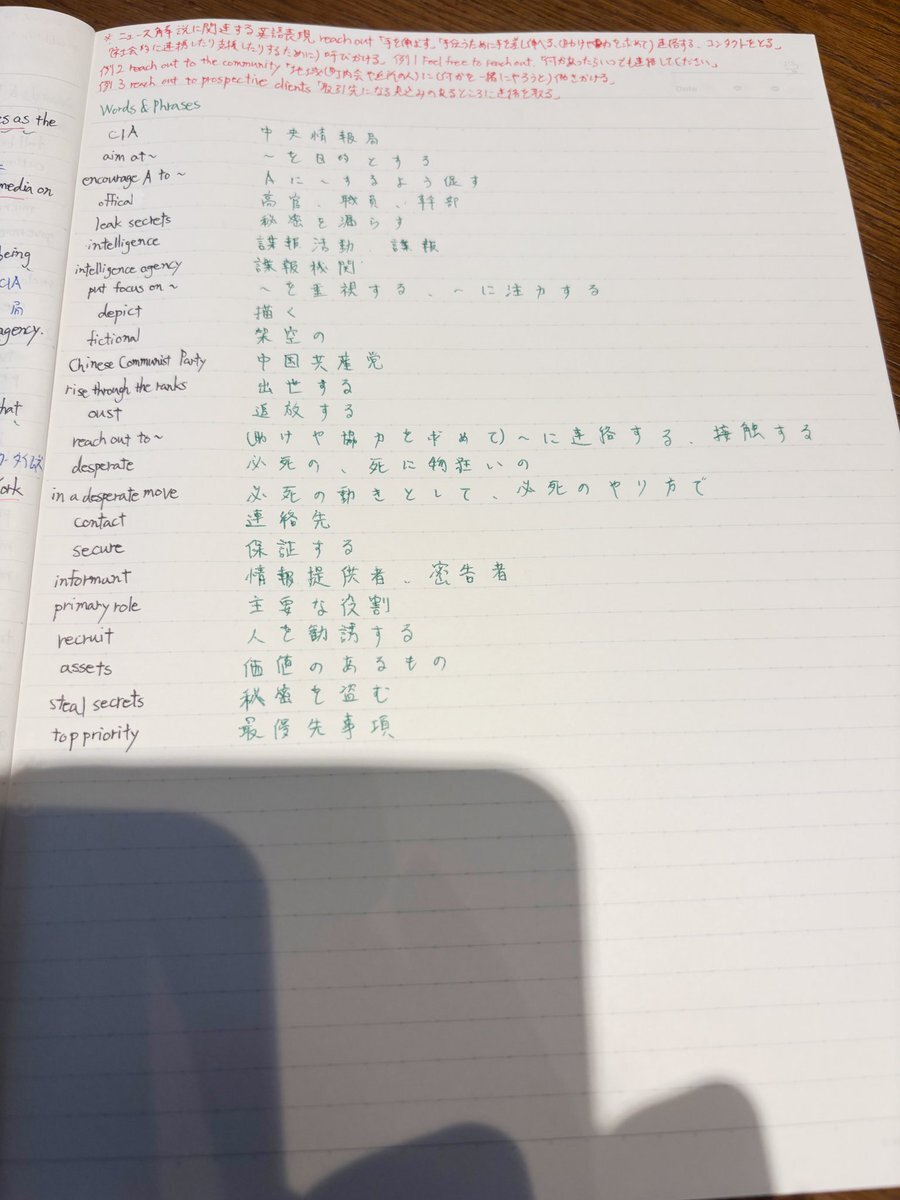 es as the
media on
being
CIA
局
agency.
that
タイムズ
York
* ニュース解説に関連する英語表現 reach out「手を伸ばす」「手伝うために手を差し伸べる、(助けや協力を求めて)連絡する、コンタクトをとる」
(社会的に連携したり支援したりするために)呼びかける」例1 Feel free to reach out.「何かあったらいつでも連絡してください。」
例2 reach out to the community「地域(町内会や近所の人)に(何かを一緒にやろうと)働きかける。」
例3 reach out to prospective clients「取引先になる見込みのあるところに連絡を取る。」
Date
Words & Phrases
CIA 中央情報局
aim at~ ~を目的とする
encourage A to~ Aに~するよう促す
offical 高官、職員、幹部
leak secrets 秘密を漏らす
intelligence 諜報活動、諜報
intelligence agency 諜報機関
put focus on~ ~を重視する、~に注力する
depict 描く
fictional 架空の
Chinese Communist Party 中国共産党
rise through the ranks 出世する
oust 追放する
reach out to~ (助けや協力を求めて)~に連絡する、接触する
desperate 必死の、死に物狂いの
in a desperate move 必死の動きとして、必死のやり方で
contact 連絡先
secure 保証する
informant 情報提供者、密告者
primary role 主要な役割
recruit 人を勧誘する
assets 価値のあるもの
steal secrets 秘密を盗む
top priority 最優先事項